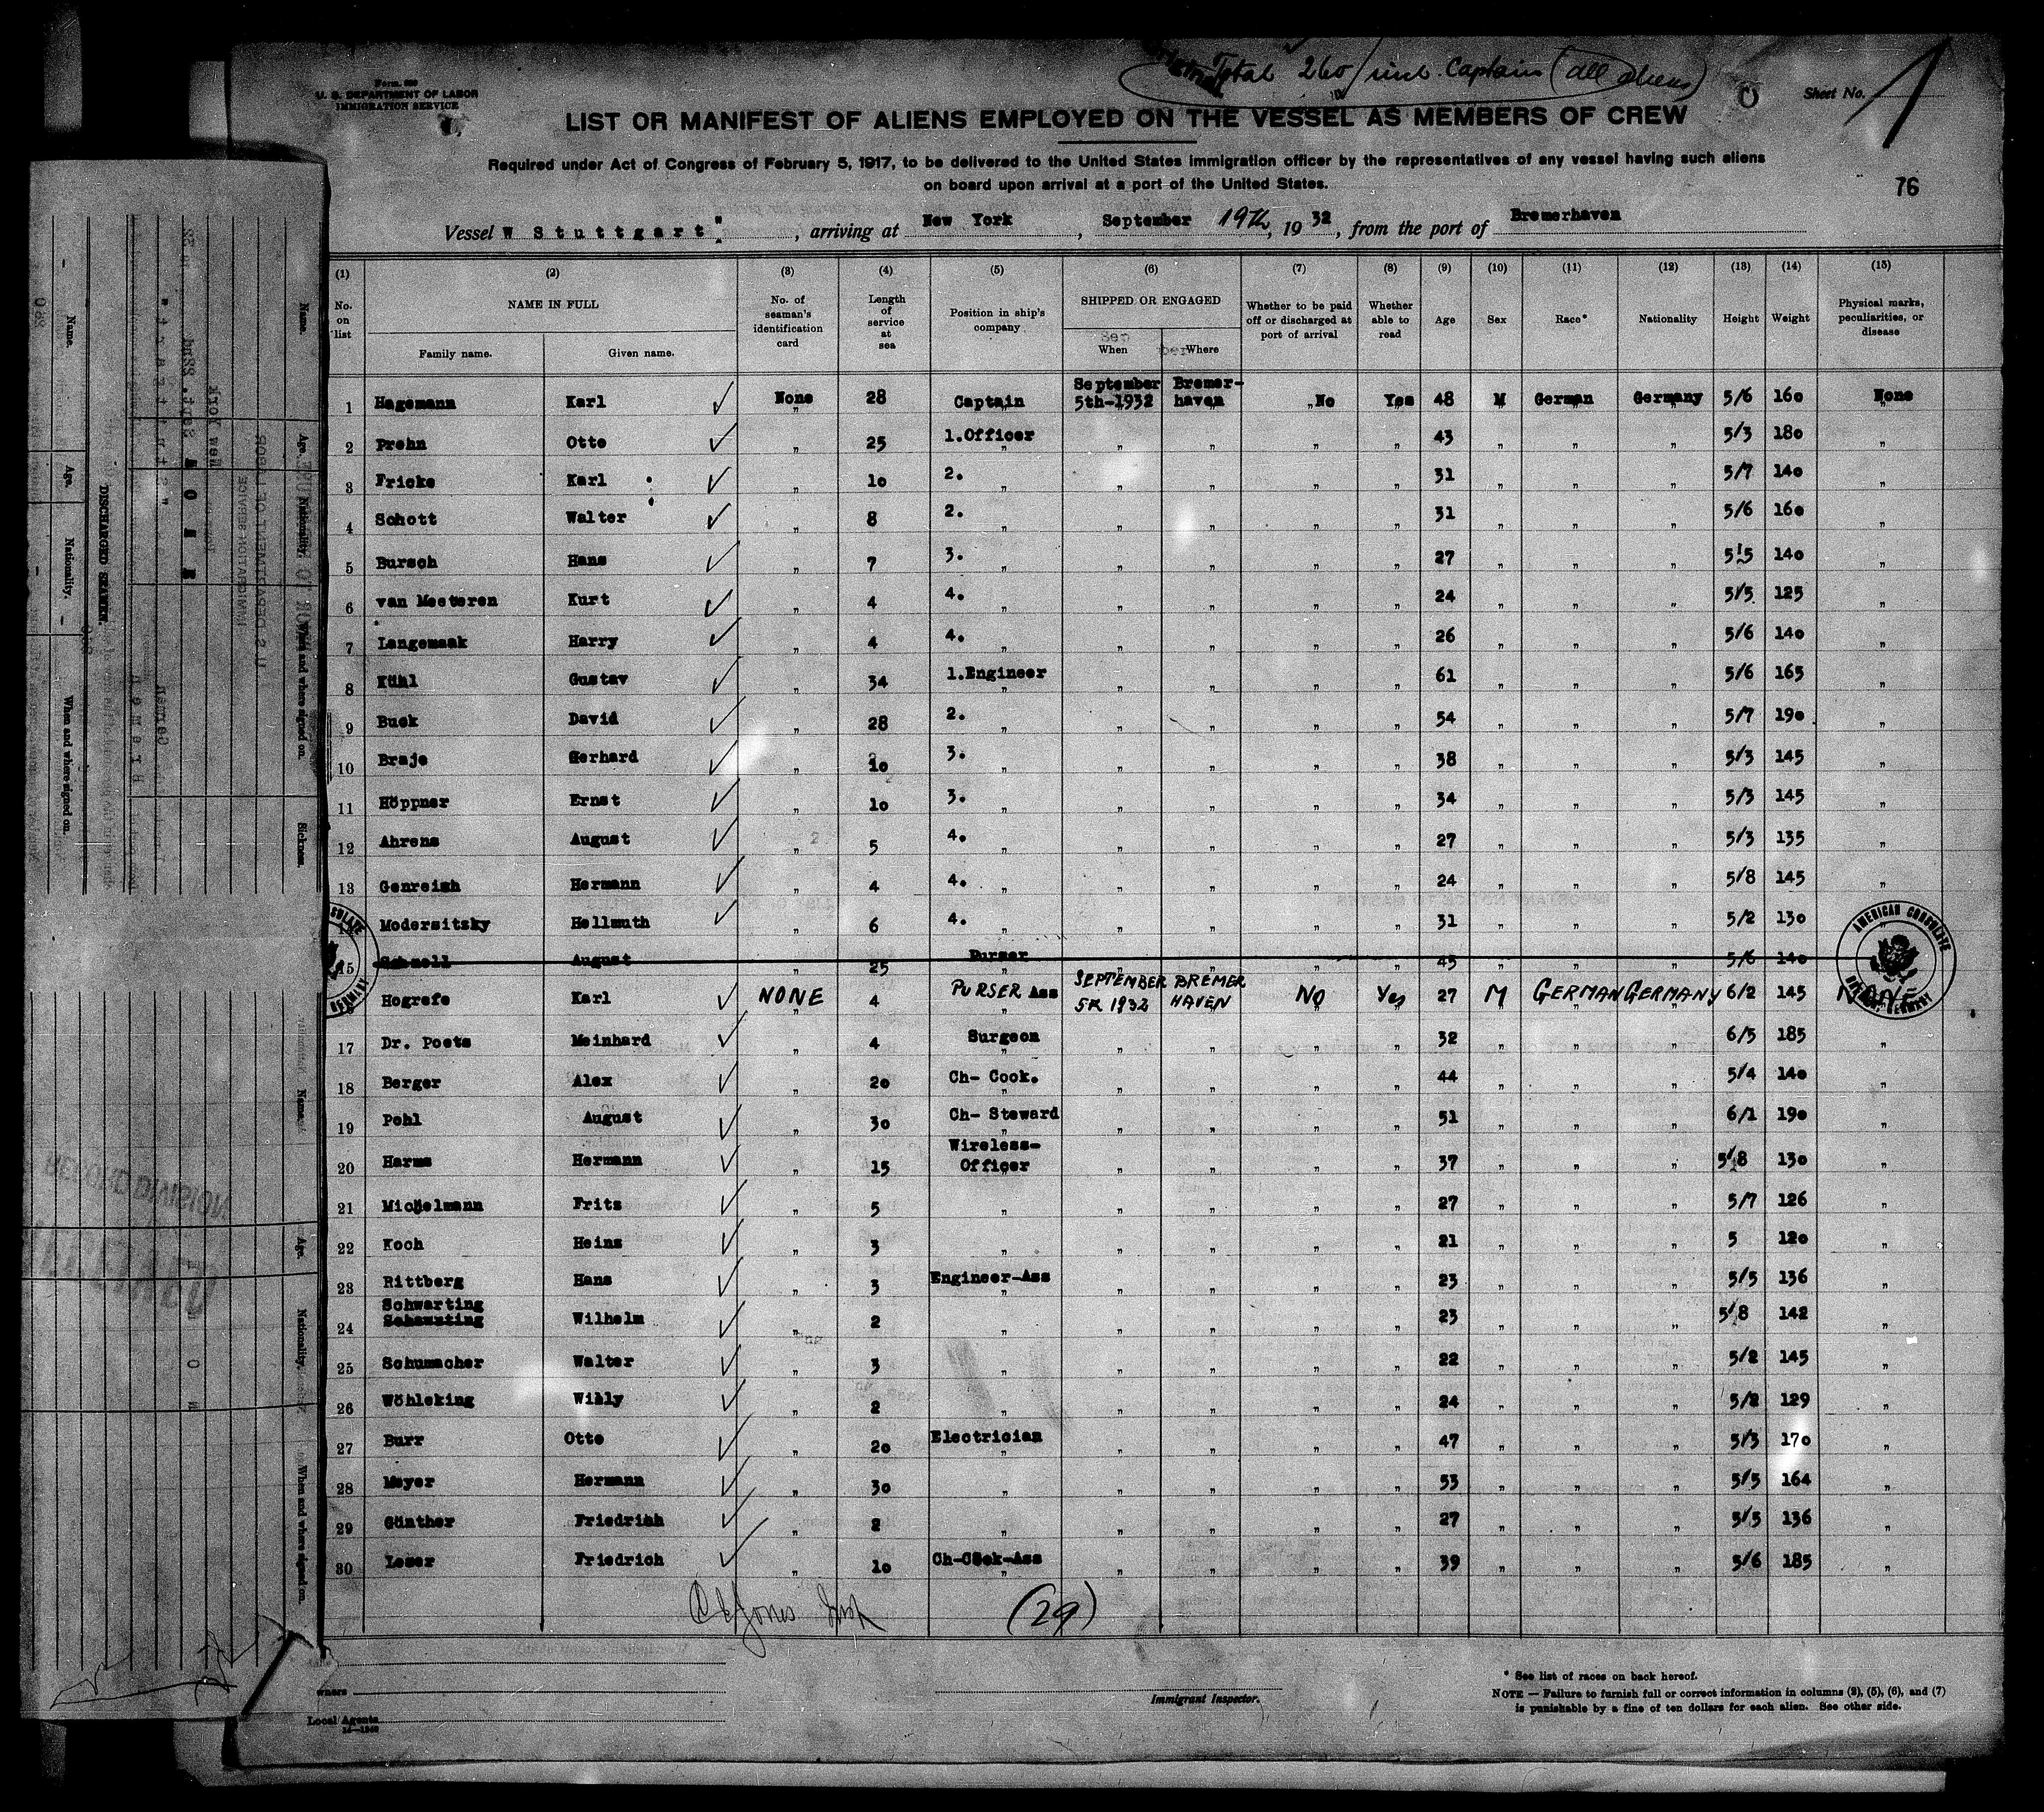 Total 260/incl. Captain (all aliens)
Form 680
U. S. DEPARTMENT OF LABOR
IMMIGRATION SERVICE
Sheet No. 1
LIST OR MANIFEST OF ALIENS EMPLOYED ON THE VESSEL AS MEMBERS OF CREW
Required under Act of Congress of February 5, 1917, to be delivered to the United States immigration officer by the representatives of any vessel having such aliens
on board upon arrival at a port of the United States.
76
Vessel " Stuttgart", arriving at New York, September 19th, 1932, from the port of Bremerhaven
(1) (2) (3) (4) (5) (6) (7) (8) (9) (10) (11) (12) (13) (14) (15)
No. on list NAME IN FULL Family name. Given name. No. of seaman's identification card Length of service at sea Position in ship's company SHIPPED OR ENGAGED When Where Whether to be paid off or discharged at port of arrival Whether able to read Age Sex Race* Nationality Height Weight Physical marks, peculiarities, or disease
1 Hagemann Karl None 28 Captain September 5th-1932 Bremer-haven No Yes 48 M German Germany 5/6 160 None
2 Prehn Otto " 25 1.Officer " " " " 43 " " " 5/3 180 "
3 Fricke Karl " 10 2. " " " " " 31 " " " 5/7 140 "
4 Schott Walter " 8 2. " " " " " 31 " " " 5/6 160 "
5 Bursch Hans " 7 3. " " " " " 27 " " " 5/5 140 "
6 van Meeteren Kurt " 4 4. " " " " " 24 " " " 5/5 125 "
7 Langemaak Harry " 4 4. " " " " " 26 " " " 5/6 140 "
8 Kühl Gustav " 34 1.Engineer " " " " 61 " " " 5/6 165 "
9 Buck David " 28 2. " " " " " 54 " " " 5/7 190 "
10 Braje Gerhard " 10 3. " " " " " 38 " " " 5/3 145 "
11 Höppner Ernst " 10 3. " " " " " 34 " " " 5/3 145 "
12 Ahrens August " 5 4. " " " " " 27 " " " 5/3 135 "
13 Genreigh Hermann " 4 4. " " " " " 24 " " " 5/8 145 "
14 Modersitzky Hellmuth " 6 4. " " " " " 31 " " " 5/2 130 "
15 Schnell August " 25 Purser " " " " 45 " " " 5/6 140
Hogrefe Karl NONE 4 PURSER Ass SEPTEMBER 5th 1932 BREMER HAVEN NO Yes 27 M GERMAN GERMANY 6/2 145 NONE
17 Dr. Poets Meinhard " 4 Surgeon " " " " 32 " " " 6/5 185 "
18 Berger Alex " 20 Ch- Cook. " " " " 44 " " " 5/4 140 "
19 Pohl August " 30 Ch- Steward " " " " 51 " " " 6/1 190 "
20 Harms Hermann " 15 Wireless-Officer " " " " 37 " " " 5/8 130 "
21 Michelmann Fritz " 5 " " " " " 27 " " " 5/7 126 "
22 Koch Heinz " 3 " " " " " 21 " " " 5 120 "
23 Rittberg Hans " 3 Engineer-Ass " " " " 23 " " " 5/5 136 "
24 Schwarting Wilhelm " 2 " " " " " 23 " " " 5/8 142 "
25 Schumacher Walter " 3 " " " " " 22 " " " 5/2 145 "
26 Wöhleking Willy " 2 " " " " " 24 " " " 5/2 129 "
27 Burr Otto " 20 Electrician " " " " 47 " " " 5/3 170 "
28 Meyer Hermann " 30 " " " " " 53 " " " 5/5 164 "
29 Günther Friedrich " 2 " " " " " 27 " " " 5/5 136 "
30 Leser Friedrich " 10 Ch-Cook-Ass " " " " 39 " " " 5/6 185 "
Jones Insp (29)
AMERICAN CONSULATE
BREMEN, GERMANY
owners
Local Agents
Immigrant Inspector.
* See list of races on back hereof.
NOTE — Failure to furnish full or correct information in columns (2), (5), (6), and (7)
is punishable by a fine of ten dollars for each alien. See other side.
DISCHARGED SEAMEN.
Name. Age. Nationality. When and where signed on.
Name. Age. Nationality. When and where signed on. Sickness.
Name. Age. Nationality. When and where signed on.
U.S DEPARTMENT OF LABOR
IMMIGRATION SERVICE
New York
RECORD DIVISION